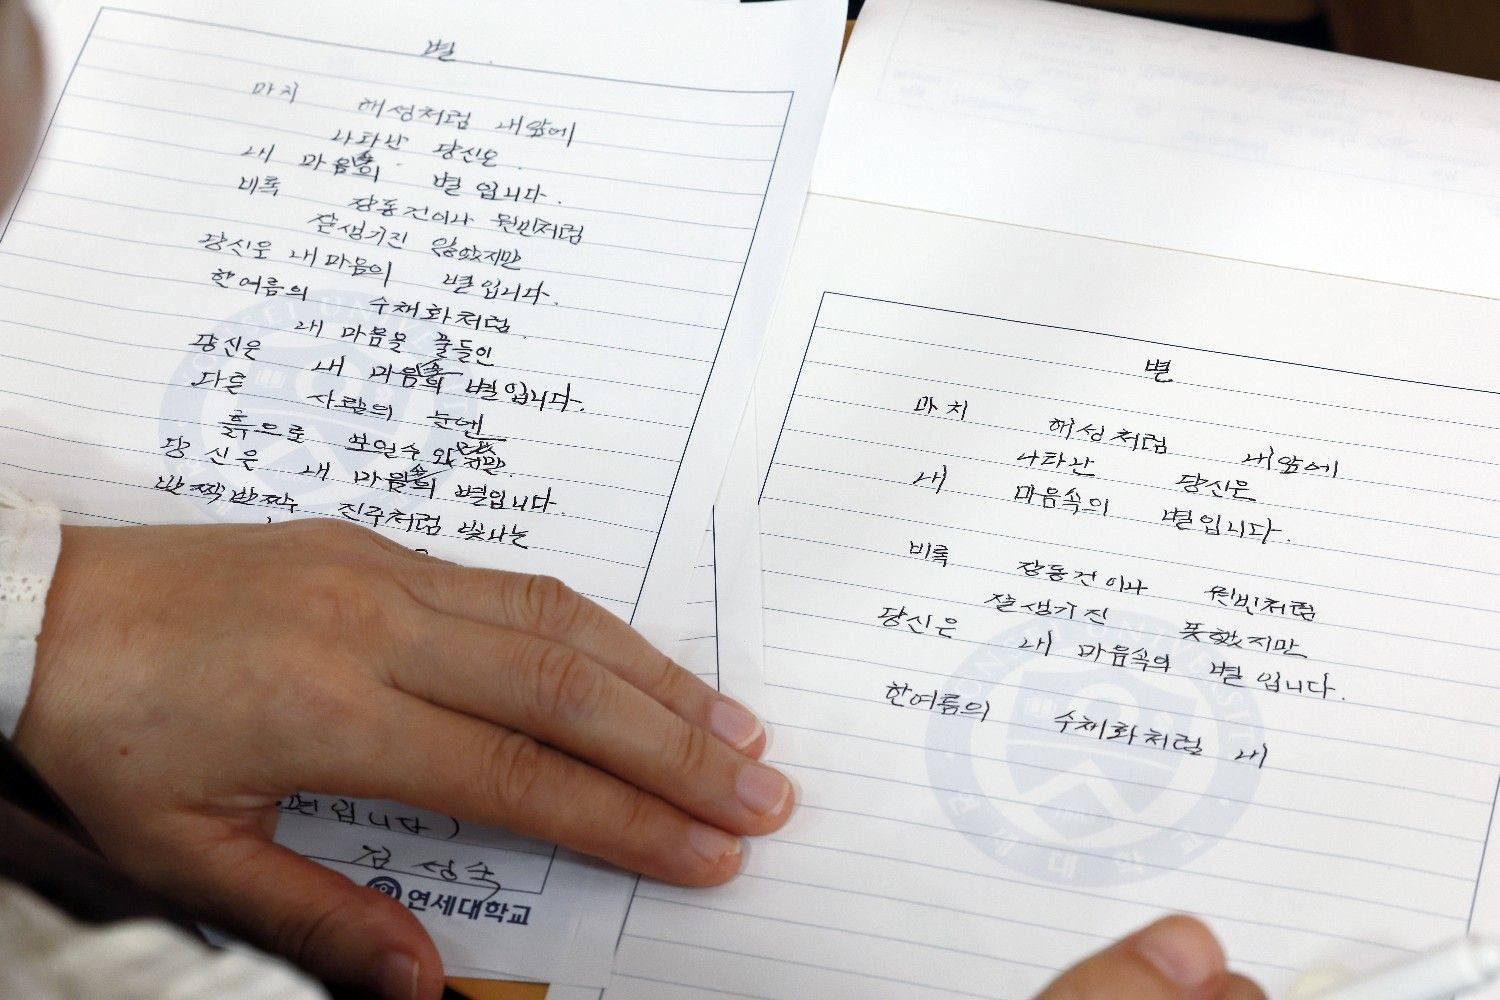 별
마치 해성처럼 내앞에
나타난 당신은
내 마음속의 별입니다.
비록 장동건이나 원빈처럼
잘생기진 않았지만
당신은 내마음의 별입니다.
한여름의 수채화처럼
내 마음을 물들인
당신은 내 마음속의 별입니다.
다른 사람의 눈엔
흙으로 보일수
당신은 내 마음속의 별입니다.
반짝반짝 진주처럼 빛나는
입니다)
김성숙
연세대학교
별
마치 해성처럼 내앞에
나타난 당신은
내 마음속의 별입니다.
비록 장동건이나 원빈처럼
잘생기진 못했지만
당신은 내 마음속의 별입니다.
한여름의 수채화처럼 내